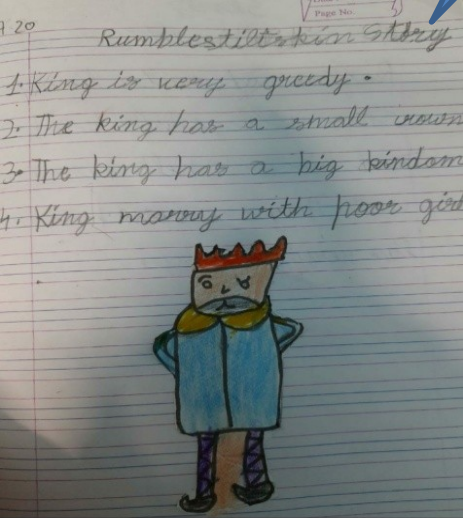 9.20
Page No.
Rumblestiltskin Story
1. King is very greedy.
2. The king has a small crown
3. The king has a big kindom
4. King marry with poor girl